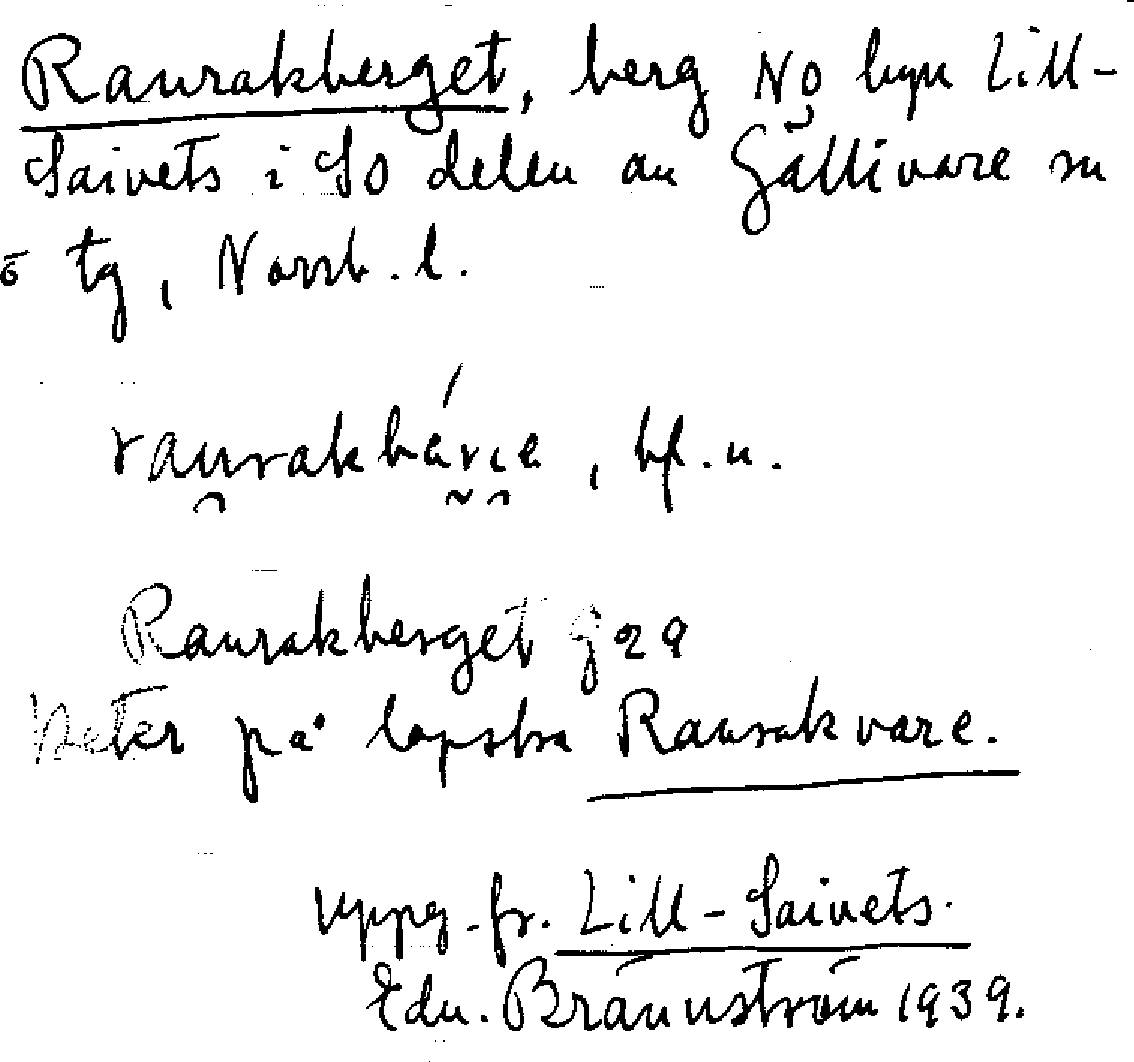 Raurakberget, berg NO byn Lill-
Saivets i SO delen av Gällivare sn
o tg, Norrb. l.
raurakbáriɛ, bf. u.
Raurakberget g 29
heter på lapska Raurakvare.
Uppg. fr. Lill-Saivets.
Edv. Brännström 1939.